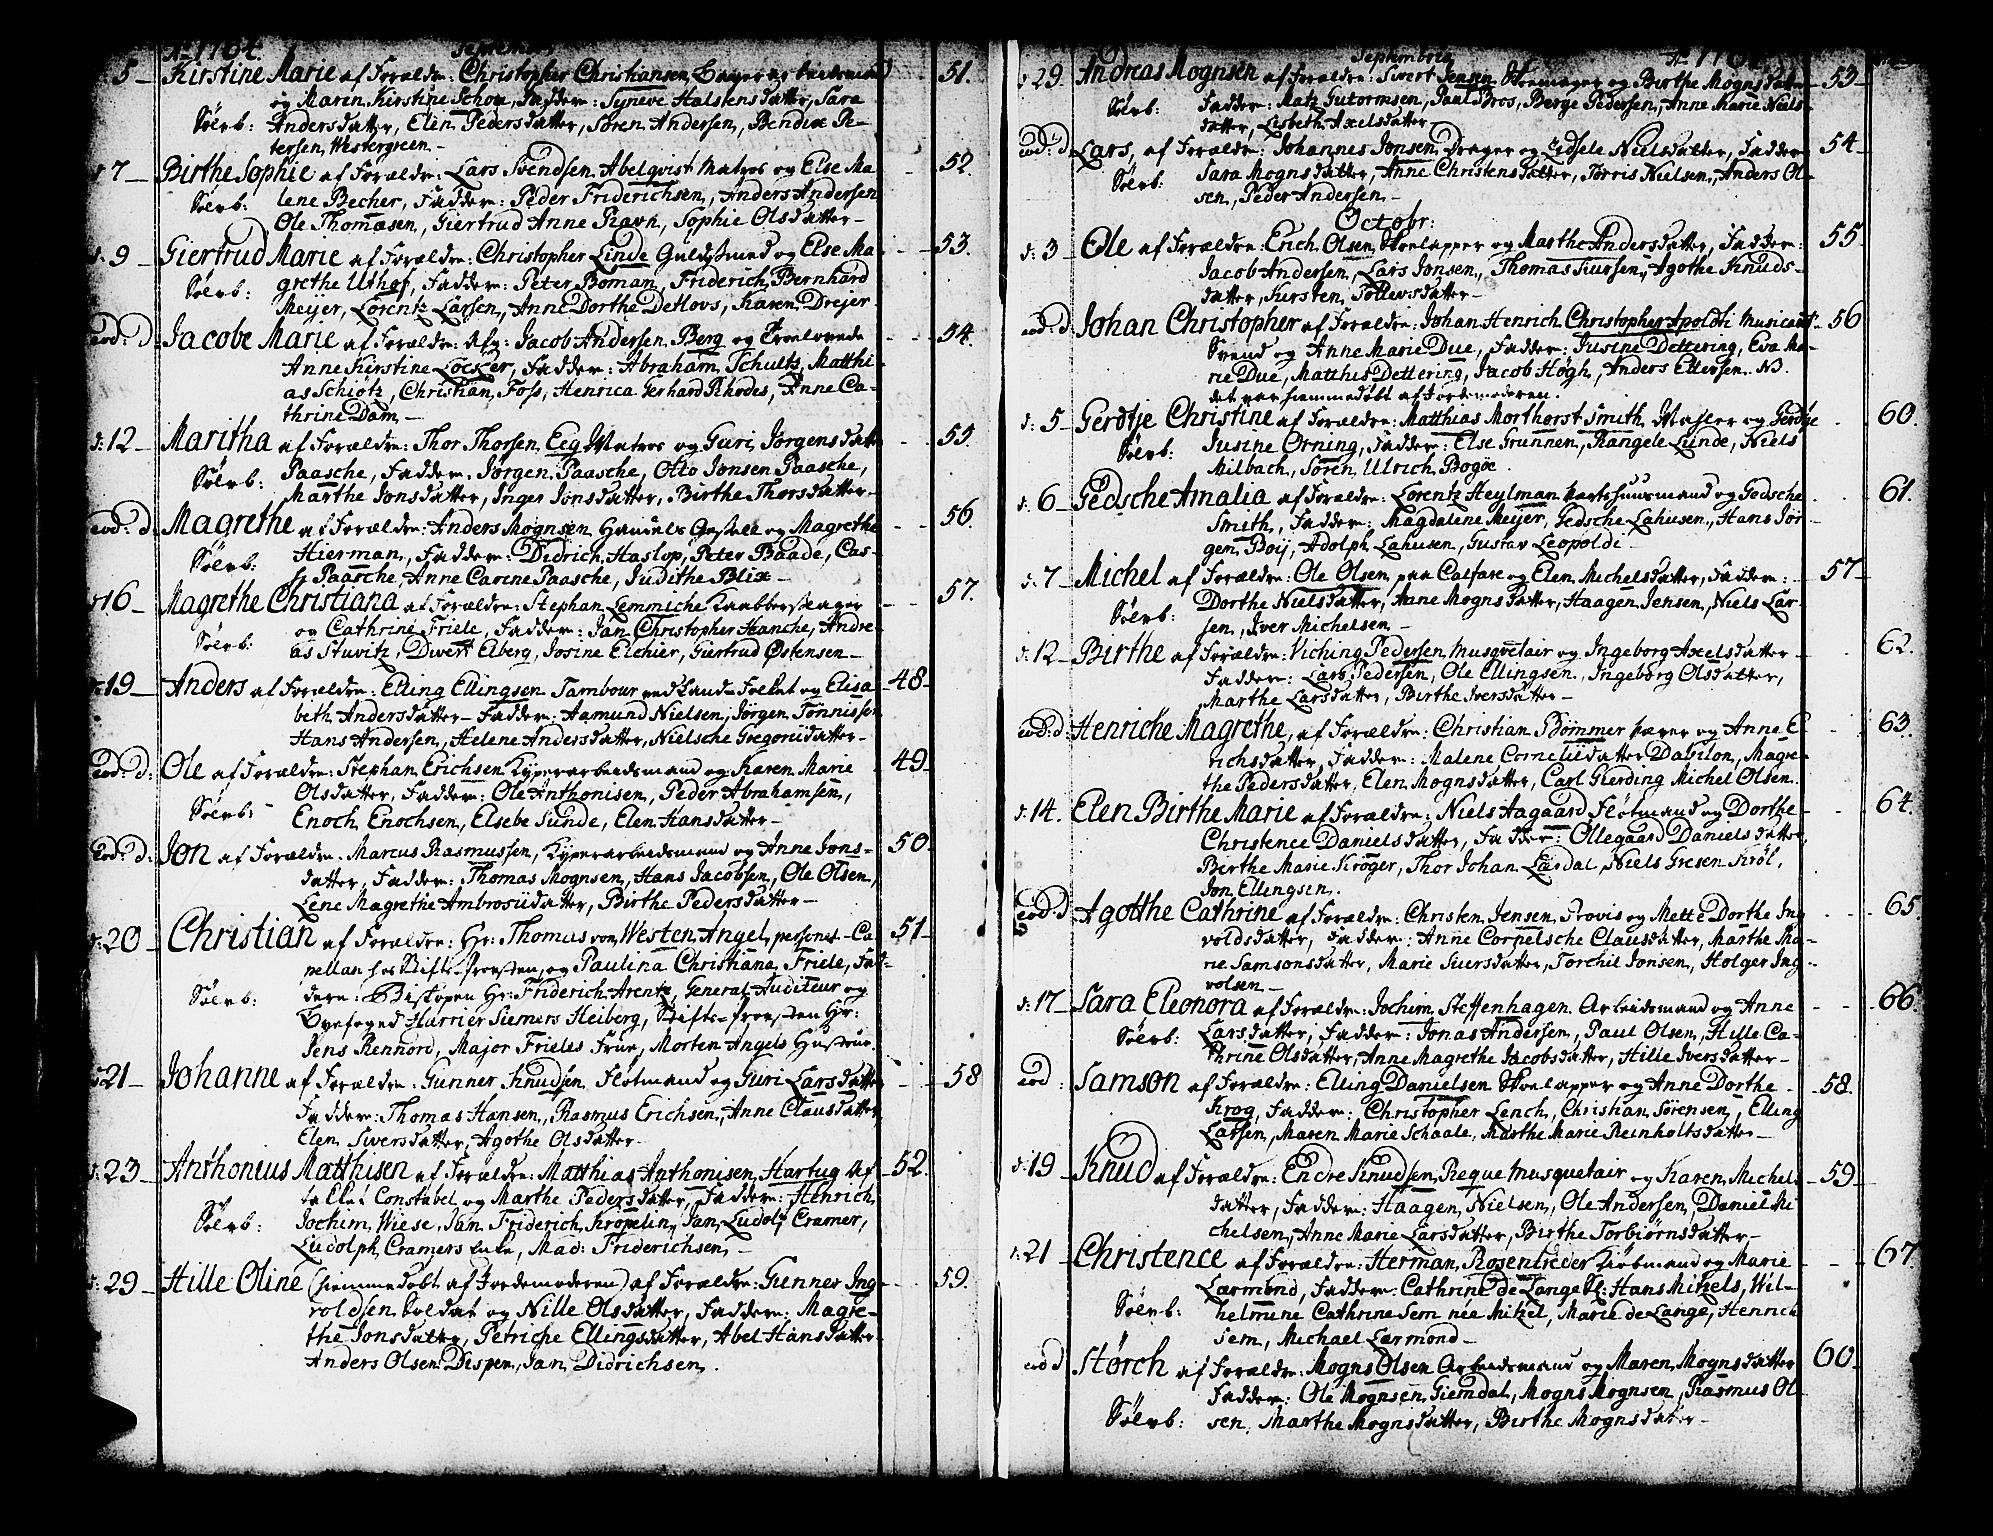 Ao 1764. Septembris
5 Kirstine Marie af Forældre: Christopher Christiansen Bager arbeidsmand 51.
og Maren Kirstine Schou, Faddere: Syneve Halstensdatter, Sara
Sølvb: Andersdatter, Elen Pedersdatter, Søren Andersen, Bendix Pe-
tersen Westergreen
d: 7 Birthe Sophie af Forældre: Lars Svendsen Abelqvist Matros og Else Ma 52.
Sølvb: lene Becher, Faddere: Peder Friderichsen, Anders Andersen
Ole Thomasen, Giertrud Anne Ravn, Sophie Olsdatter
d: 9 Giertrud Marie af Forældre: Christopher Linde Guldsmed og Else Ma 53.
Sølvb: grethe Uthof, Faddere: Peter Boman, Friderich Bernhard
Meijer, Lorentz Larsen, Anne Dorthe Detlovs, Karen Drejer
eod: d: Jacobe Marie af Forældre: Afg: Jacob Andersen Berg og Troelovede 54.
Anne Kirstine Löcker, Faddere: Abraham Schultz, Matthi
as Schiötz, Christian Foss, Henrica Gerhard Rhodes, Anne Ca-
thrine Dam
d: 12 Maritha af Forældre: Thor Thorsen Eeg Matros og Guri Jörgensdatter 55.
Sølvb: Paasche, Faddere: Jörgen Paasche, Otto Jonsen Paasche,
Marthe Jonsdatter, Inger Jonsdatter, Birthe Thorsdatter
eod: d: Magrethe af Forældre: Anders Mognsen Handels Gesell og Magrethe 56.
Sølvb: Hierman, Faddere: Didrich Haslop, Peter Baade, Cas-
Paasche, Anne Carine Paasche, Judithe Blix
d: 16 Magrethe Christiana af Forældre: Stephan Lemmiche Kaabberslager 57.
Sølvb: og Cathrine Friele, Faddere: Jan Christopher Hanche, Andre-
as Stuvitz, Divert Elberg, Josine Eichier, Giertrud Østensen
d: 19 Anders af Forældre: Elling Ellingsen Tambour ved Land-Folket og Elisa 48
beth Andersdatter Faddere: Aamund Nielsen, Jörgen Tönnissen
Hans Andersen, Helene Andersdatter, Nielsche Gregoriidatter
eod: d: Ole af Forældre: Stephan Erichsen Kyperarbeidsmand og Karen Marie 49
Sølvb: Olsdatter, Faddere: Ole Anthonisen, Peder Abrahamsen,
Enoch Enochsen, Elsebe Sunde, Elen Hansdatter
eod: d: Jon af Forældre: Marcus Rasmussen, Kyperarbeidsmand og Anne Jons- 50.
datter, Faddere: Thomas Mognsen, Hans Jacobsen, Ole Olsen,
Lene Magrethe Ambrosiidatter, Birthe Pedersdatter
d: 20 Christian af Forældre: Hr: Thomas von Westen Angel, personel Ca- 51
pellan hos Stifts-Provsten, og Paulina Christiana Friele, Fad-
Sølvb: dere: Biskopen Hr: Friderich Arentz, General Auditeur og
Byefoged Harrier Siemers Heiberg, Stifts-Provsten Hr:
Jens Rennord, Major Frieles Frue, Morten Angels Hustrue.
d: 21 Johanne af Forældre: Gunner Knudsen, Flotmand og Guri Larsdatter 58
Faddere: Thomas Hansen, Rasmus Erichsen, Anne Clausdatter
Elen Siversdatter, Agothe Olsdatter
d: 23 Anthoneus Matthisen af Forældre: Matthias Anthonisen Hartug Af 52.
takket Constabel og Marthe Pedersdatter, Faddere: Henrich
Sølvb: Jochim Wiese, Jan Friderich Kröpelin, Jan Ludolf Cramer,
Ludolph Cramers Enke, Mad: Friderichsen
d: 29 Hille Oline (hiemmedöbt af Jordemoderen) af Forældre: Gunner Ing 59.
voldsen Soldat og Nille Olsdatter, Faddere: Magre-
the Jonsdatter, Petriche Ellingsdatter, Abel Hansdatter
Anders Olsen Dispen, Jan Didrichsen.
Septembris Ao 1764
d 29. Andreas Mognsen af Forældre: Sivert Jensen Skoemager og Birthe Mognsdatter 53
Sølvb: Faddere: Matz Gutormsen, Paul Bros, Berge Pedersen, Anne Marie Niels-
datter, Lisbeth Axelsdatter
eod: d Lars, af Forældre: Johannes Jonsen Drager og Zidsele Nielsdatter, Faddere 54
Sølvb: Sara Mognsdatter, Anne Christensdatter, Torris Nielsen, Anders Ol-
sen, Peder Andersen
Octobr:
d: 3 Ole af Forældre: Erich Olsen Skoelapper og Marthe Andersdatter, Faddere: 55
Jacob Andersen, Lars Jonsen, Thomas Siursen, Agothe Knuds-
datter, Kirsten Tollevsdatter
eod: d Johan Christopher af Forældre: Johan Henrich Christopher Apoldi Musicant 56
Svend og Anne Marie Due, Faddere: Jusine Dettering, Eva Ma-
rie Due, Matthis Dettering, Jacob Högh, Anders Ellersen. NB.
det var hiemmedöbt af Jordemoderen.
d: 5 Gerdtje Christine af Forældre: Matthias Morthorst Smith, Mæsler og Gerdtje 60.
Sølvb: Jusine Orning, Faddere: Else Grunnen, Rangele Lunde, Niels
Milbach, Sören Ulrich Bogöe
d: 6 Gedsche Amalia af Forældre: Lorentz Heylman Partshuusmand og Gedsche 61.
Smith, Faddere: Magdalene Meijer, Gedsche Lahusen, Hans Jör-
gen Boij, Adolph Lahusen, Gustav Leopoldi
d: 7 Michel af Forældre: Ole Olsen paa Calfare og Elen Michelsdatter, Faddere: 57
Sølvb: Dorthe Nielsdatter, Anne Mognsdatter, Haagen Jensen, Niels Lar-
sen, Iver Michelsen
d: 12 Birthe af Forældre: Viching Pedersen Musqvetair og Ingeborg Axelsdatter 62.
Faddere: Lars Pedersen, Ole Ellingsen, Ingeborg Olsdatter,
Marthe Larsdatter, Birthe Iversdatter
eod: d: Henriche Magrethe, af Forældre: Christian Bömmer Farver og Anne E 63.
richsdatter, Faddere: Malene Corneliidatter Dabilon, Magre-
the Pedersdatter, Elen Mognsdatter, Carl Gierding Michel Olsen.
d: 14. Elen Birthe Marie af Forældre: Niels Aagaard, Flotmand og Dorthe 64.
Christence Danielsdatter, Faddere: Ollegaard Danielsdatter
Birthe Marie Kröger, Thor Johan Lærdal, Niels Gresen Kröl,
Jon Ellingsen.
eod: d Agotthe Cathrine af Forældre: Christen Jensen, Provis og Mette Dorthe Ing 65
voldsdatter, Faddere: Anne Cornelsche Clausdatter, Marthe Ma-
rie Samsonsdatter, Marie Siursdatter, Torchil Jonsen, Holger Ing
volsen
d: 17 Sara Eleonora af Forældre: Jochim Steffenhagen Arbeidsmand og Anne 66.
Sølvb: Larsdatter, Faddere: Jonas Andersen, Paul Olsen, Hille Ca-
thrine Olsdatter, Anne Magrethe Jacobsdatter, Hille Iversdatter
eod: Samson af Forældre: Elling Danielsen Skoelapper og Anne Dorthe 58.
Krog, Faddere: Christopher Lench, Christian Sörensen, Elling
Larsen, Maren Marie Schaale, Marthe Marie Reinholtsdatter
d: 19 Knud af Forældre: Endre Knudsen Reque Musquetair og Karen Michels 59
datter, Faddere: Haagen Nielsen, Ole Andersen, Daniel Mi
chelsen, Anne Marie Larsdatter, Birthe Torbiörnsdatter
d: 21 Christence af Forældre: Herman Rosentreder Kiöbmand og Marie 67
Lærmond, Faddere: Cathrine de Lange Sl: Hans Mitzels, Wil-
Sølvb: helmine Cathrine Sem née Mitzel, Marie de Lange, Henrich
Sem, Michael Lærmond
eod d Störch af Forældre: Mogns Olsen Arbeidsmand og Maren Mognsdatter 60
Faddere: Ole Mognsen Giemdal, Mogns Mognsen, Rasmus Ol-
Sølvb: sen, Marthe Mognsdatter, Birthe Mognsdatter